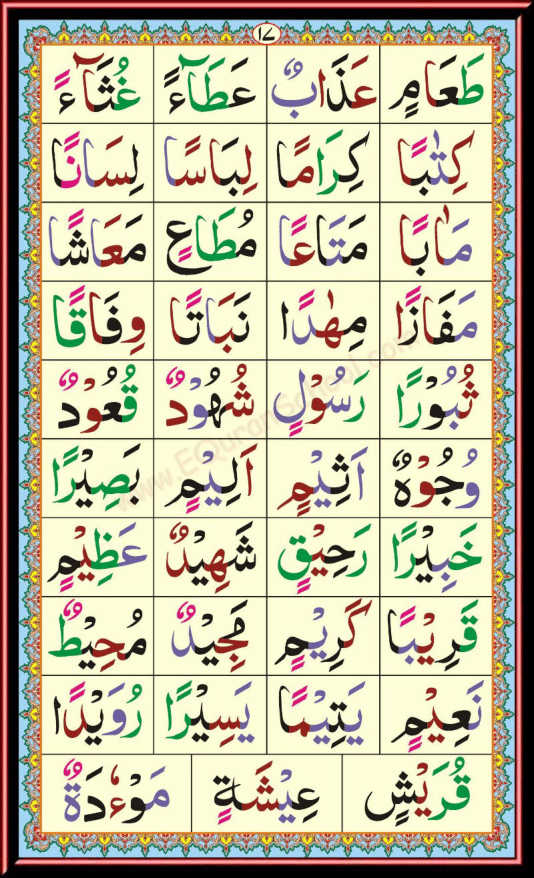 ١٧
طَعَامٍ عَذَابٌ عَطَآءً غُثَآءً
كِتٰبًا كِرَامًا لِبَاسًا لِسَانًا
مَاٰبًا مَتَاعًا مُطَاعٍ مَعَاشًا
مَفَازًا مِهٰدًا نَبَاتًا وِفَاقًا
ثُبُوْرًا رَسُوْلٍ شُهُوْدٌ قُعُوْدٌ
وُجُوْهٌ اَثِيْمٍ اَلِيْمٍ بَصِيْرًا
خَبِيْرًا رَحِيْقٍ شَهِيْدٌ عَظِيْمٍ
قَرِيْبًا كَرِيْمٍ مَجِيْدٌ مُحِيْطٌ
نَعِيْمٍ يَتِيْمًا يَسِيْرًا رُوَيْدًا
قُرَيْشٍ عِيْشَةٍ مَوْءٗدَةٌ
www.EQuranSchool.com